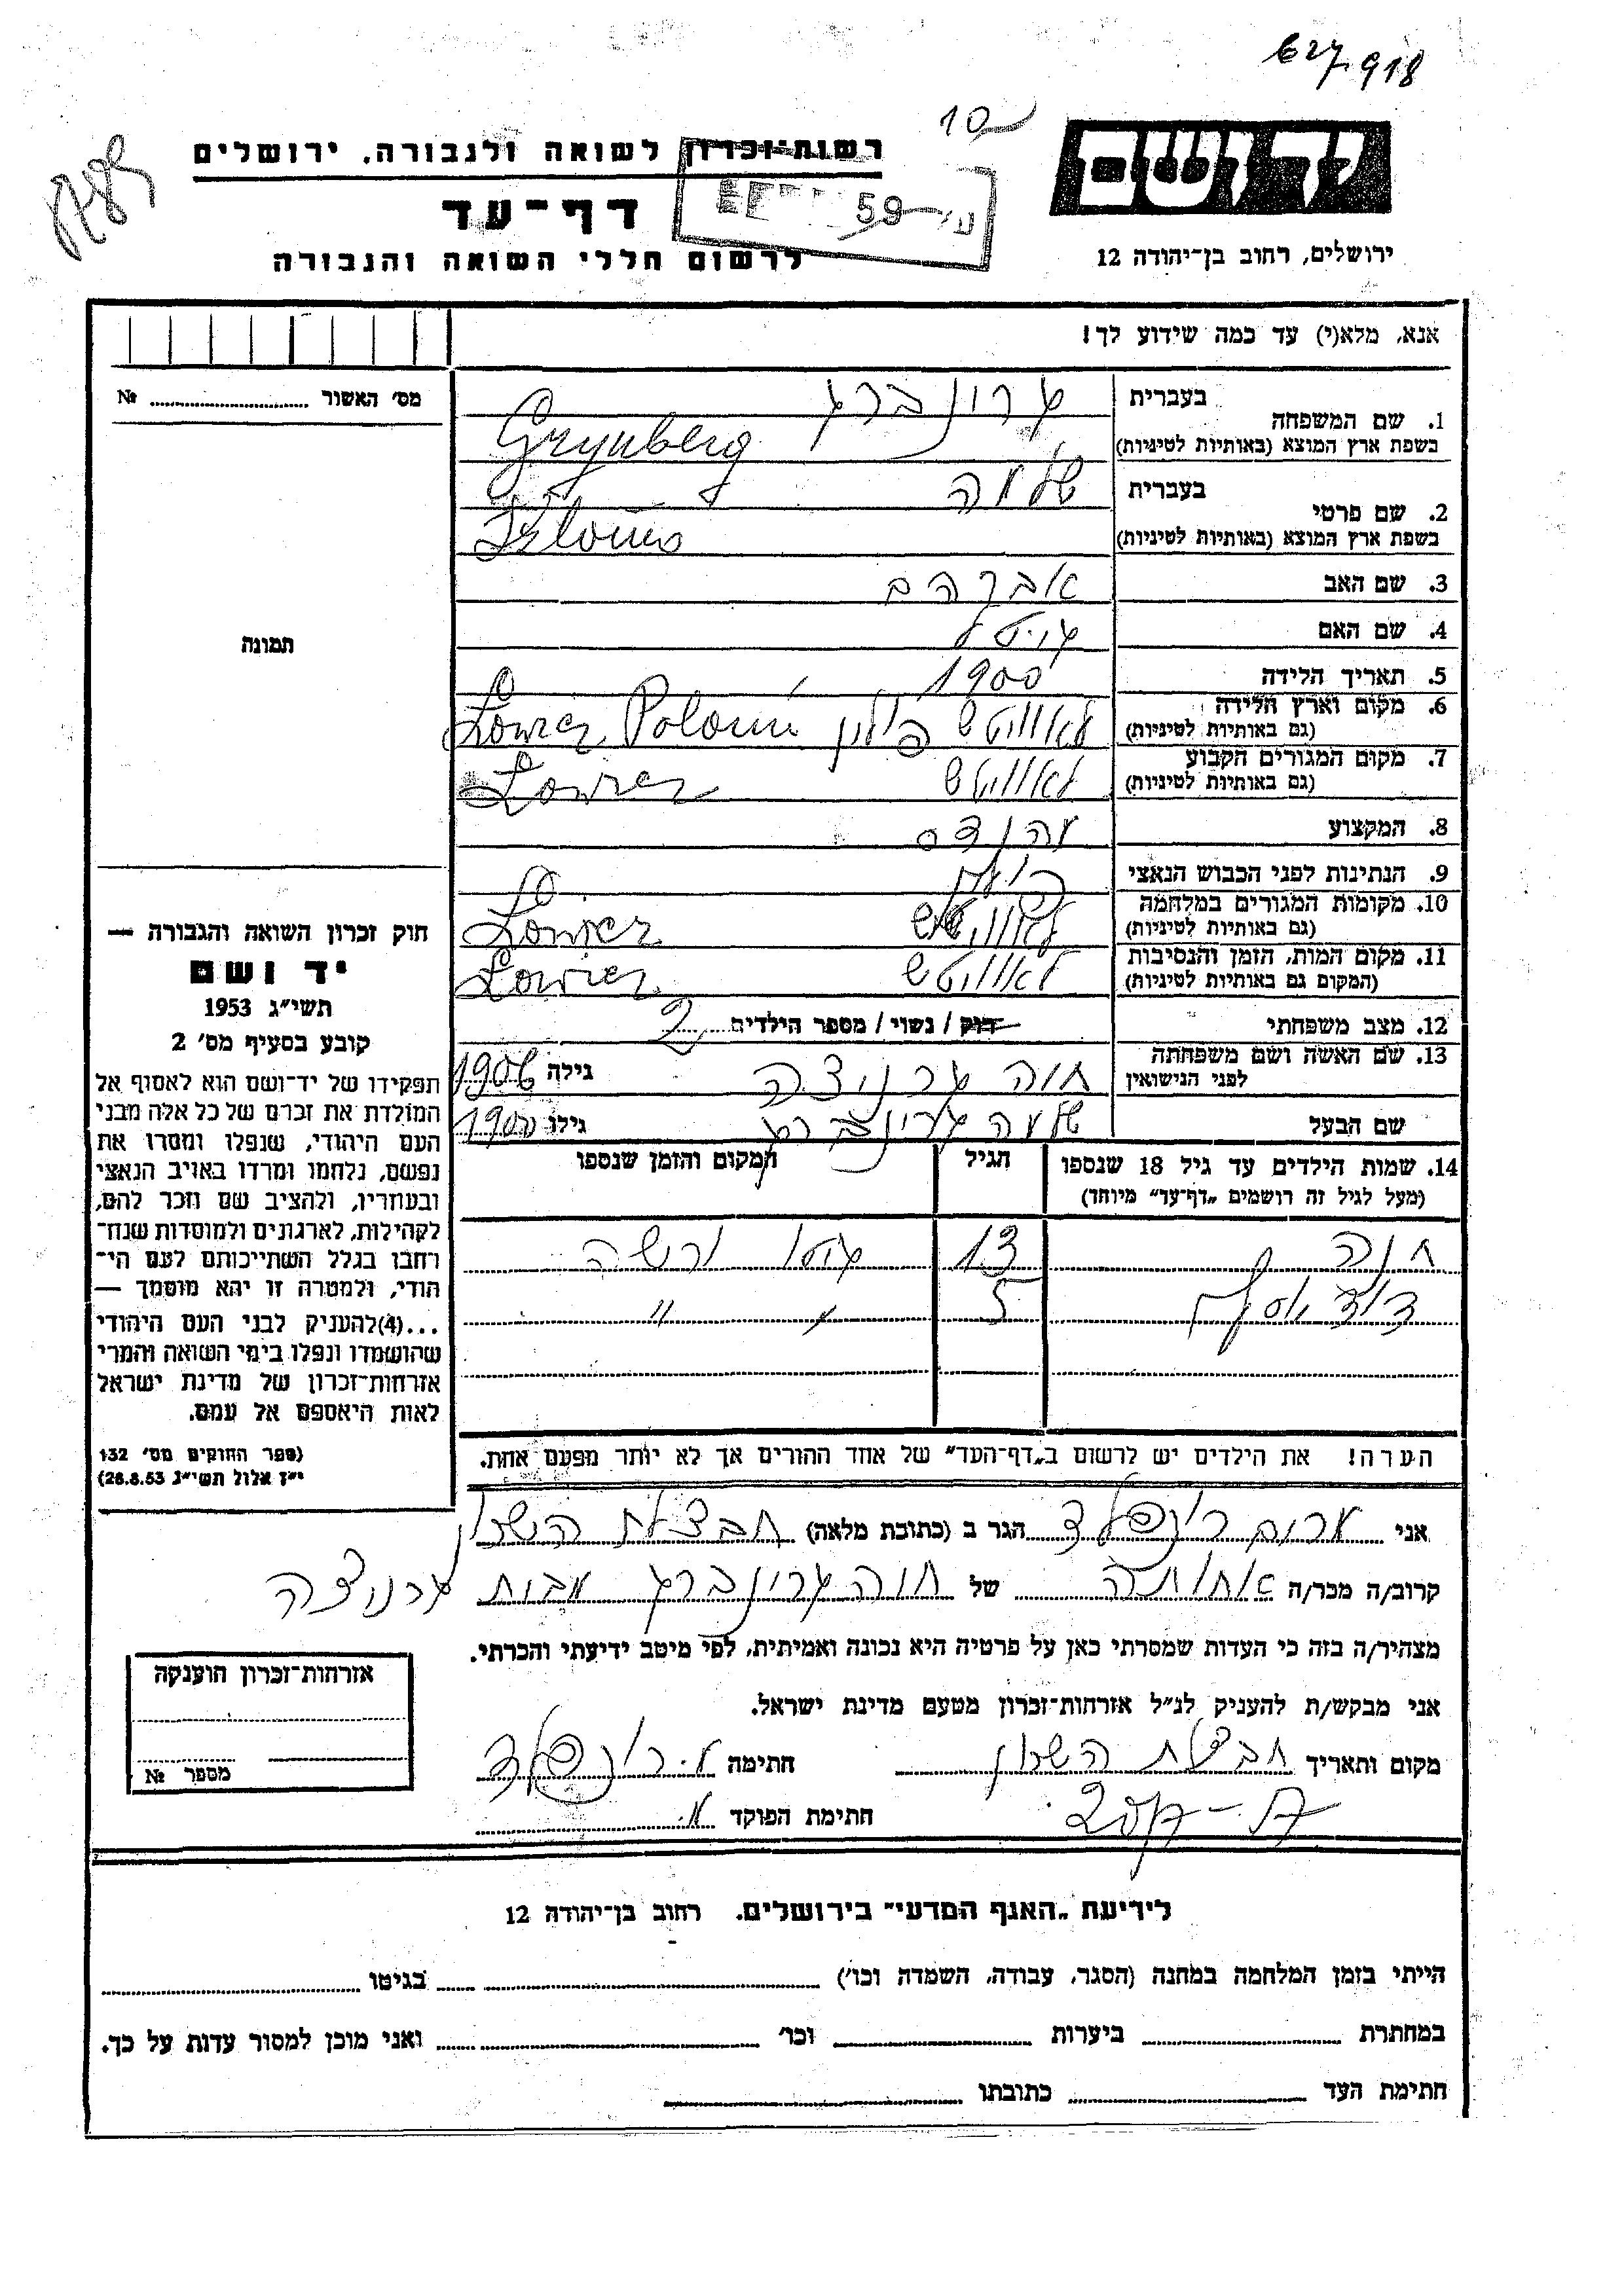 627.918
10
ידושם
רשות-זכרון לשואה ולגבורה, ירושלים
59
דף-עד
לרשום חללי השואה והגבורה
ירושלים, רחוב בן-יהודה 12
אנא, מלא(י) עד כמה שידוע לך!
מס' האשור № 
תמונה
בעברית גרונברג
1. שם המשפחה
בשפת ארץ המוצא (באותיות לטיניות) Grynberg
בעברית שלמה
2. שם פרטי
בשפת ארץ המוצא (באותיות לטיניות)
3. שם האב אברהם
4. שם האם גיטל
5. תאריך הלידה 1900
6. מקום וארץ הלידה
(גם באותיות לטיניות) לאוויטש פולין
7. מקום המגורים הקבוע
(גם באותיות לטיניות) לאוויטש
8. המקצוע מהנדס
9. הנתינות לפני הכבוש הנאצי
10. מקומות המגורים במלחמה
(גם באותיות לטיניות) לאוויטש
11. מקום המות, הזמן והנסיבות
(המקום גם באותיות לטיניות) לאוויטש
12. מצב משפחתי רוק / נשוי / מספר הילדים 2
13. שם האשה ושם משפחתה
לפני הנישואין חוה גרניצה גילה 1906
שם הבעל שלמה גרינברג גילו 1900
14. שמות הילדים עד גיל 18 שנספו
(מעל לגיל זה רושמים „דף-עד" מיוחד) הגיל המקום והזמן שנספו
חנה 13 גטו ורשה
דוד יוסף 5 " "
הערה! את הילדים יש לרשום ב„דף-העד" של אחד ההורים אך לא יותר מפעם אחת.
חוק זכרון השואה והגבורה —
יד ושם
תשי"ג 1953
קובע בסעיף מס' 2
תפקידו של יד-ושם הוא לאסוף אל
המולדת את זכרם של כל אלה מבני
העם היהודי, שנפלו ומסרו את
נפשם, נלחמו ומרדו באויב הנאצי
ובעוזריו, ולהציב שם וזכר להם,
לקהילות, לארגונים ולמוסדות שנח-
רבו בגלל השתייכותם לעם הי-
הודי, ולמטרה זו יהא מוסמך —
...(4)להעניק לבני העם היהודי
שהושמדו ונפלו בימי השואה והמרי
אזרחות-זכרון של מדינת ישראל
לאות היאספם אל עמם.
(ספר החוקים מס' 132
י"ז אלול תשי"ג 28.8.53)
אני רינפלד הגר ב (כתובת מלאה) חבצלת השרון
קרוב/ה מכר/ה אחותה של חוה גרונברג מבית גרניצה
מצהיר/ה בזה כי העדות שמסרתי כאן על פרטיה היא נכונה ואמיתית, לפי מיטב ידיעתי והכרתי.
אני מבקש/ת להעניק לנ"ל אזרחות-זכרון מטעם מדינת ישראל.
מקום ותאריך חבצלת השרון חתימה רינפלד
חתימת הפוקד
אזרחות-זכרון הוענקה
מספר №
לידיעת „האגף המדעי" בירושלים, רחוב בן-יהודה 12
הייתי בזמן המלחמה במחנה (הסגר, עבודה, השמדה וכו') בגיטו
במחתרת ביערות וכו' ואני מוכן למסור עדות על כך.
חתימת העד כתובתו